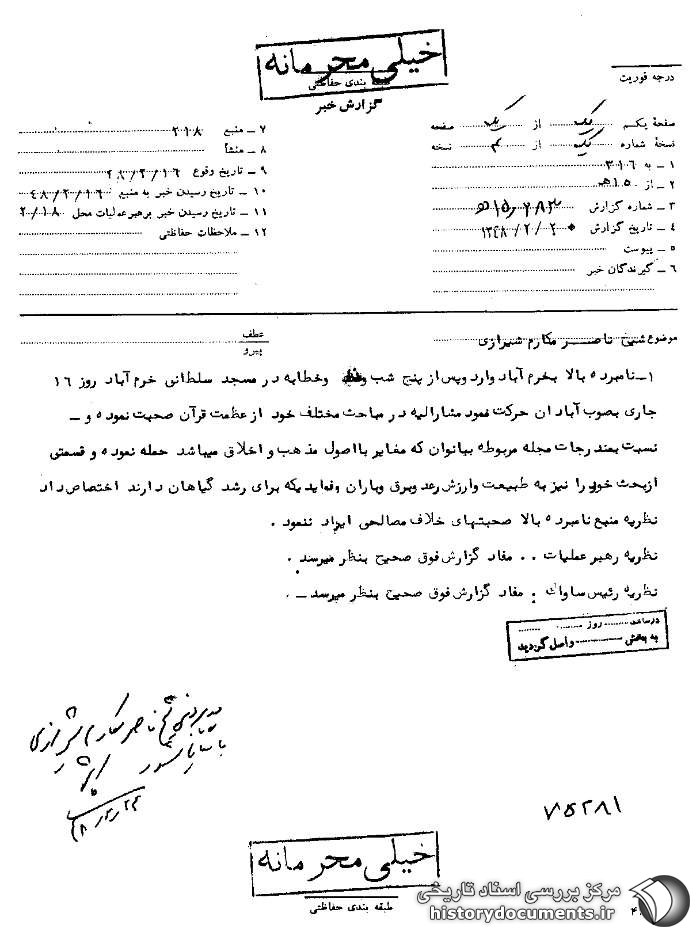 خیلی محرمانه
طبقه بندی حفاظتی
گزارش خبر
درجه فوریت
صفحهٔ یکم یک از یک صفحه
نسخهٔ شماره یک از ۴ نسخه
۱ ـ به ۳۱۶
۲ ـ از ۱۵ هـ
۳ ـ شماره گزارش
۴ ـ تاریخ گزارش ۱۳۴۸/۲/۲۰
۵ ـ پیوست
۶ ـ گیرندگان خبر
۷ ـ منبع ۲۱۸
۸ ـ منشأ
۹ ـ تاریخ وقوع ۴۸/۲/۱۶
۱۰ ـ تاریخ رسیدن خبر به منبع ۴۸/۲/۱۶
۱۱ ـ تاریخ رسیدن خبر برهبر عملیات محل ۲/۱۸
۱۲ ـ ملاحظات حفاظتی
موضوع شیخ ناصر مکارم شیرازی
عطف
پیرو
۱ـ نامبرده بالا بخرم آباد وارد و پس از پنج شب وعظ وخطابه در مسجد سلطانی خرم آباد روز ۱۶
جاری بصوب آبادان حرکت نمود مشارالیه در مباحث مختلف خود از عظمت قرآن صحبت نموده و ـ
نسبت بمندرجات مجله مربوطه ببانوان که مغایر با اصول مذهب و اخلاق میباشد حمله نموده و قسمتی
از بحث خود را نیز به طبیعت وارزش رعد وبرق وباران وفوایدیکه برای رشد گیاهان دارند اختصاص داد
نظریه منبع نامبرده بالا صحبتهای خلاف مصالحی ایراد ننمود .
نظریه رهبر عملیات .. مفاد گزارش فوق صحیح بنظر میرسد .
نظریه رئیس ساواک : مفاد گزارش فوق صحیح بنظر میرسد ـ .
در ساعت روز
به بخش واصل گردید
شیخ ناصر مکارم شیرازی
۷۵۲۸۱
خیلی محرمانه
طبقه بندی حفاظتی
مرکز بررسی اسناد تاریخی
historydocuments.ir